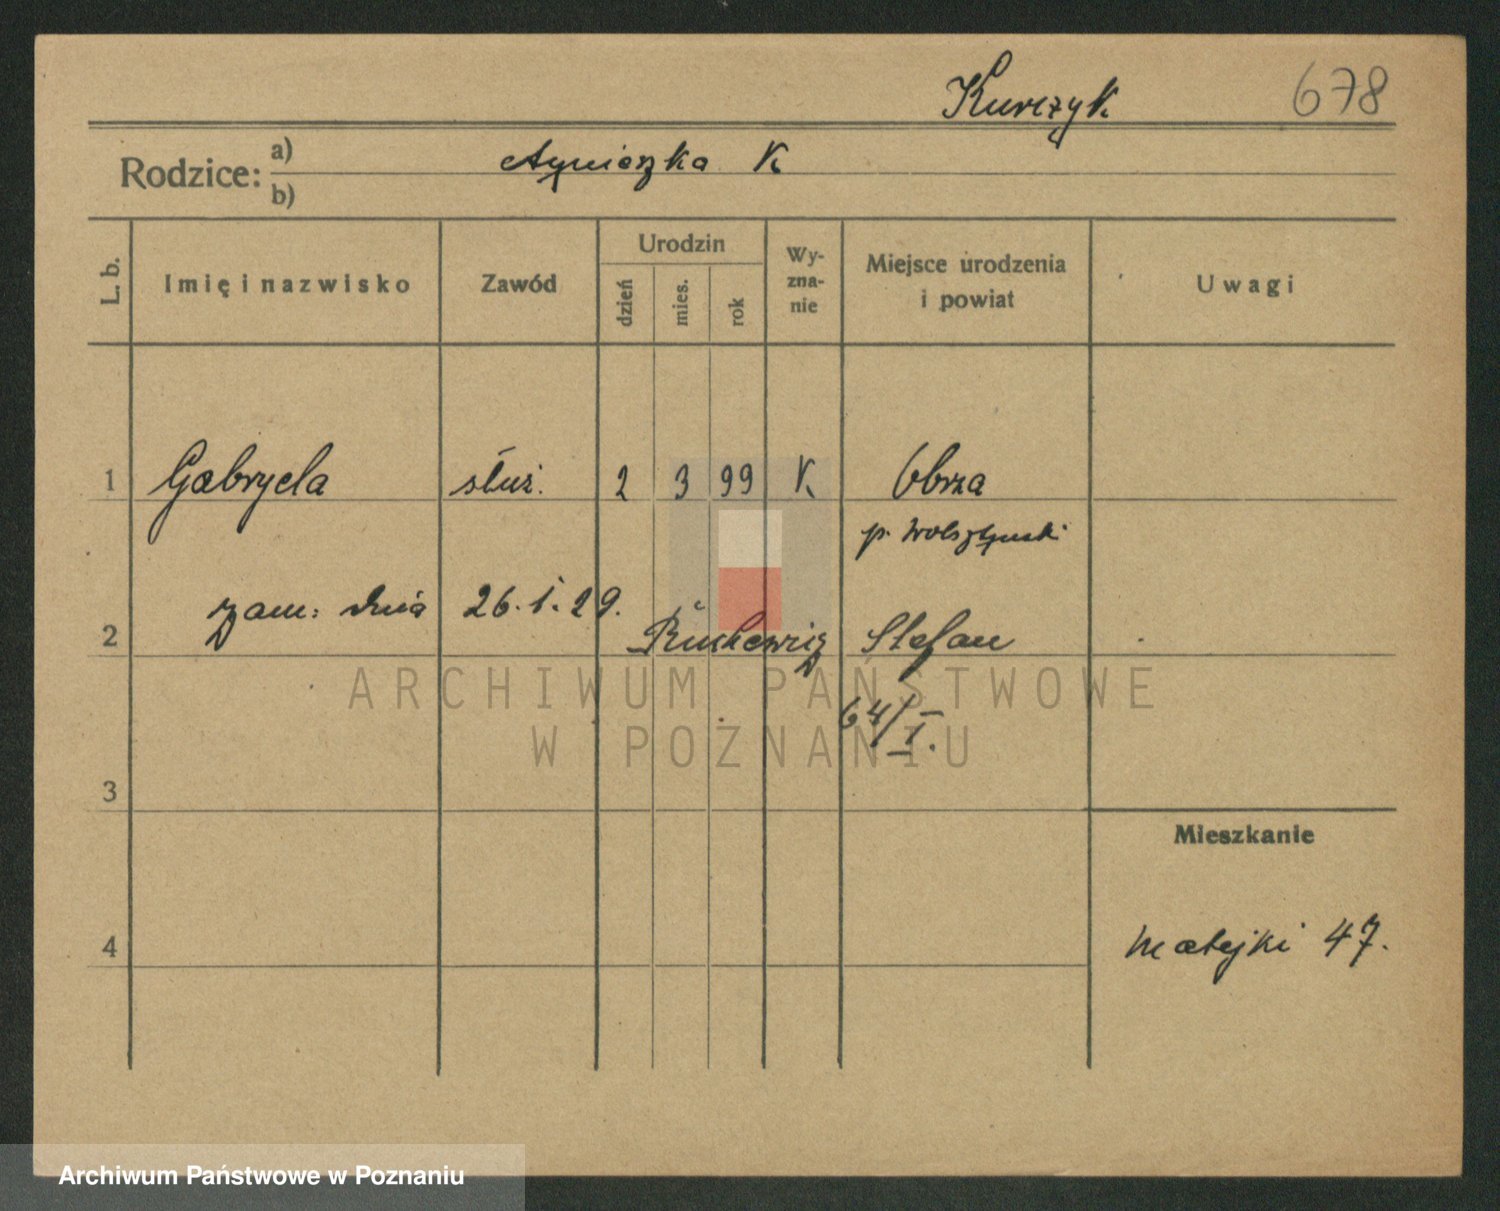 Kurczyk 678
Rodzice: a) Agnieszka K
b)
L. b. Imię i nazwisko Zawód Urodzin dzień mies. rok Wyznanie Miejsce urodzenia i powiat Uwagi
1 Gabryela służ. 2 3 99 K. Obrza
p. Wolsztyński
zam: dnia 26.1.29.
2 Stefan
64/I.
ARCHIWUM PAŃSTWOWE
W POZNANIU
3
Mieszkanie
4 Matejki 47.
Archiwum Państwowe w Poznaniu